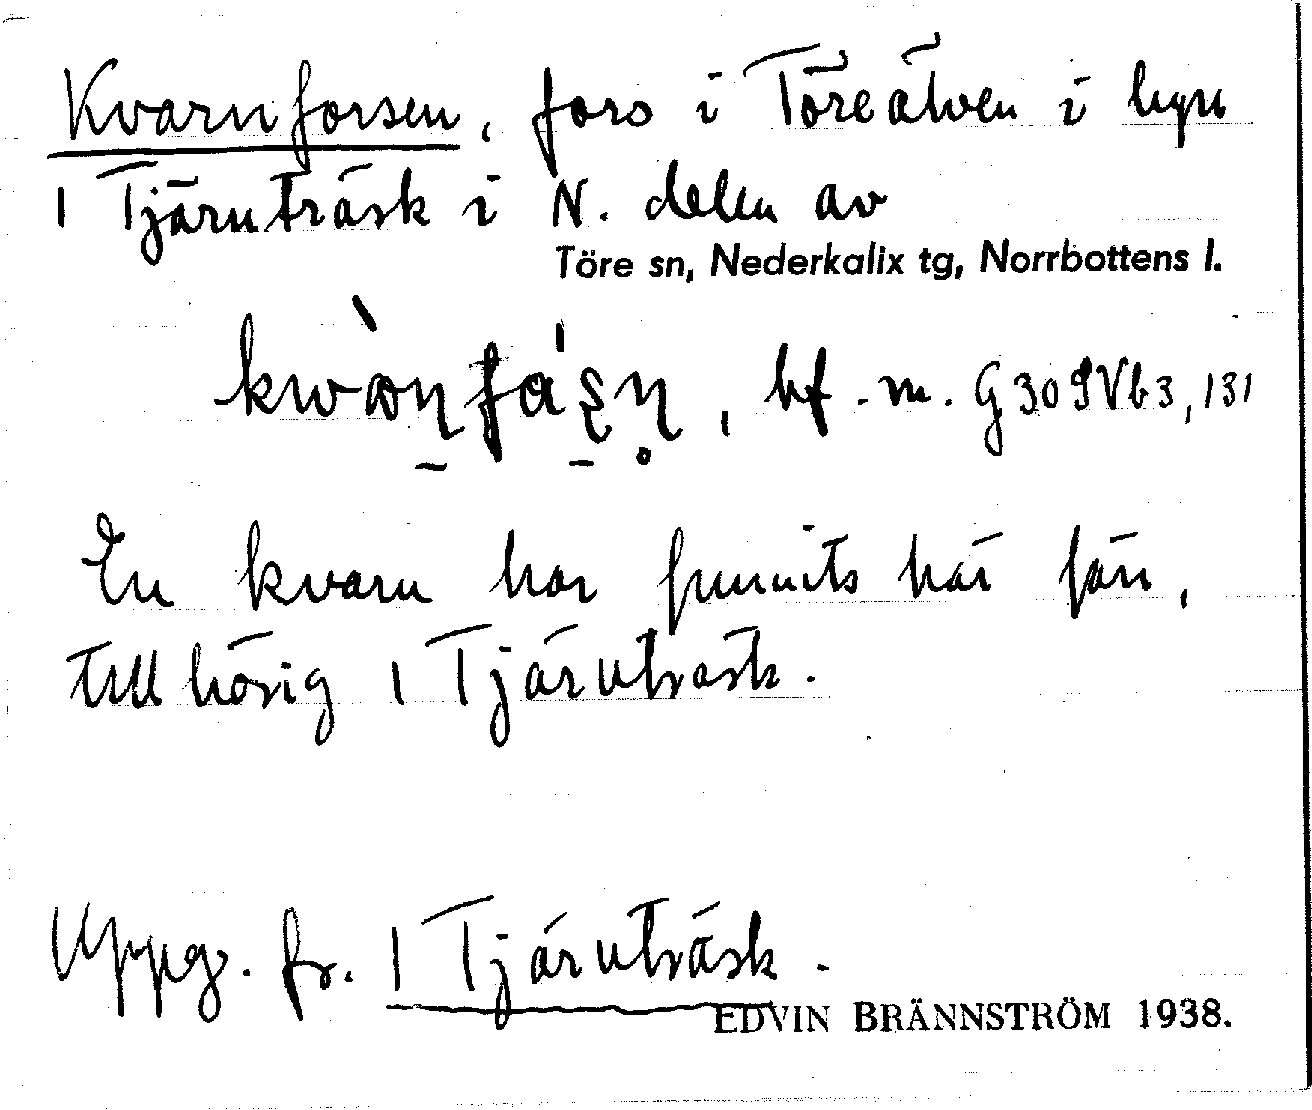 Kvarnforsen, fors i Töreälven i byn
1 Tjärnträsk i N. delen av
Töre sn, Nederkalix tg, Norrbottens l.
bf. m. G309Vb3,131
En kvarn har funnits här förr,
tillhörig 1 Tjärnträsk.
Uppg. fr. 1 Tjärnträsk.
EDVIN BRÄNNSTRÖM 1938.